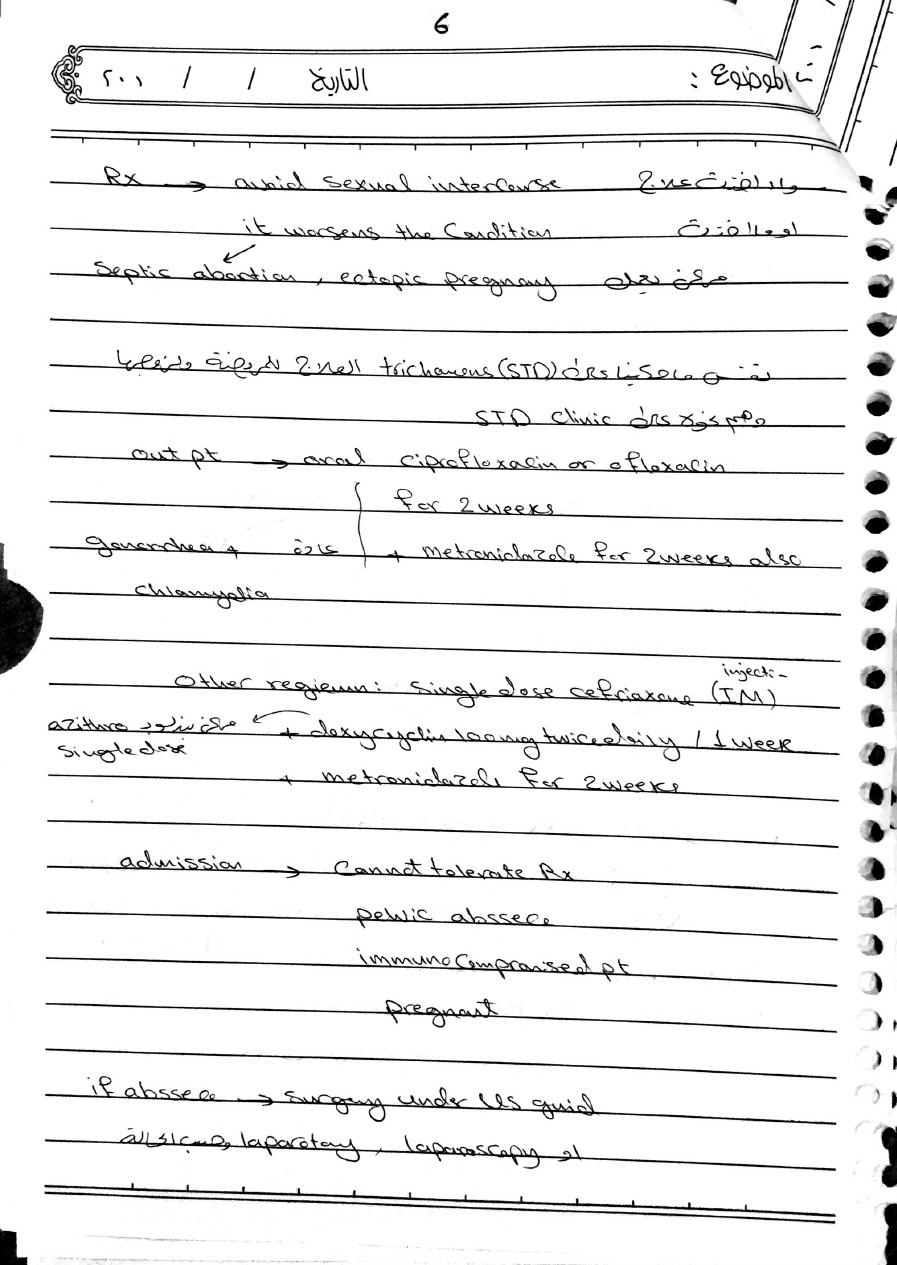 6
الموضوع : التاريخ / / ٢٠٠١
Rx → avoid sexual intercourse سواء اخذت علاج
it worsens the Condition او ما اخذت
Septic abortion , ectopic pregnancy ممكن يعمل
trichomonas (STD) العلاج للمريضة وزوجها
STD Clinic
out pt → oral ciprofloxacin or ofloxacin
for 2 weeks
gonorrhea + عادة + metronidazole for 2 weeks also
chlamydia
injecti-
Other regieum: Single dose cefriaxone (IM)
azithro ممكن + doxycyclin 100mg twice daily / 1 week
Single dose
+ metronidazole for 2 weeks
admission → Cannot tolerate Rx
pelvic abssece
immunoCompromised pt
pregnant
if abssece → surgery under US guid
او laparoscopy , laparotomy وحسب الحالة